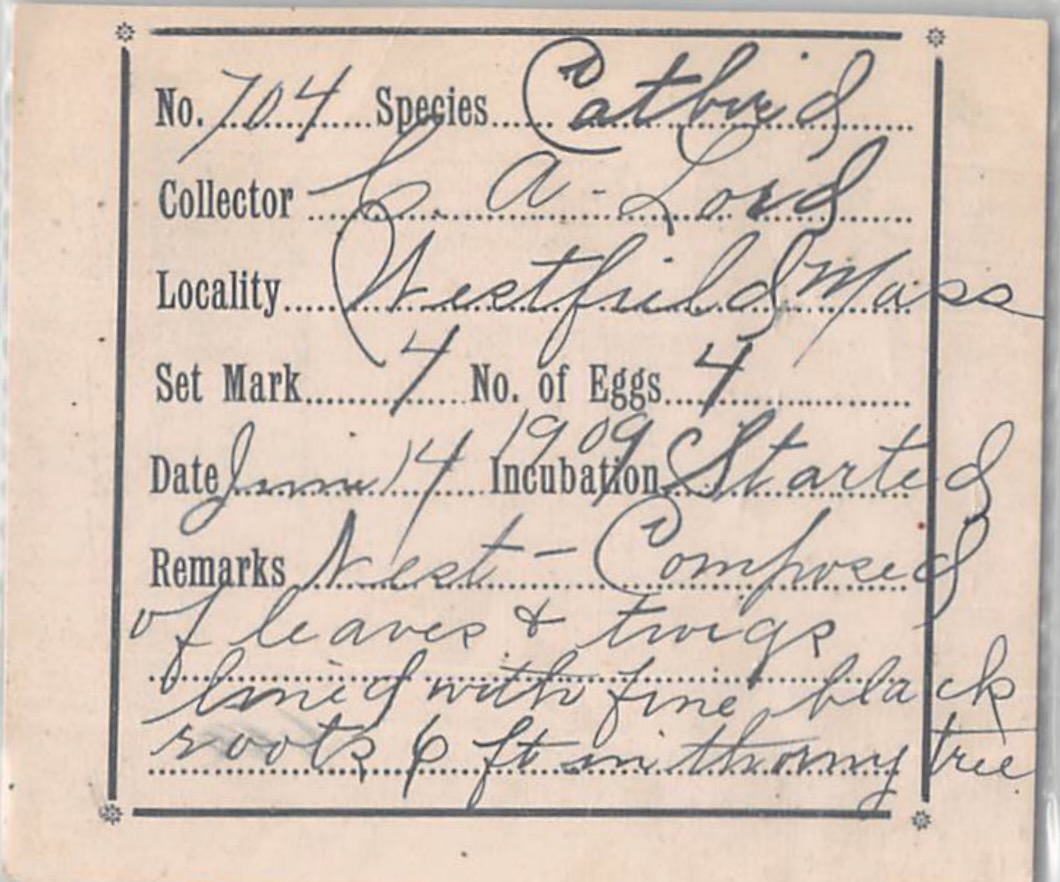 No. 704 Species Catbird
Collector C. A - Lord
Locality Westfield Mass
Set Mark 4 No. of Eggs 4
Date June 14 1909 Incubation Started
Remarks Nest - Composed
of leaves & twigs
lined with fine black
roots 6 ft in thorny tree